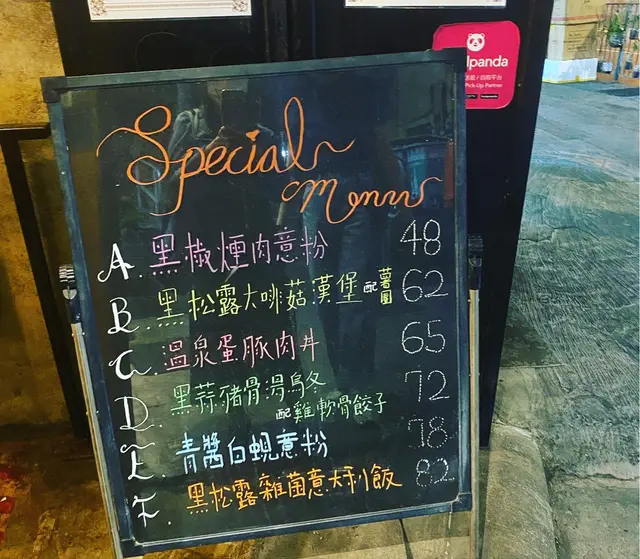 lpanda
Pick-Up Partner
Special
Menu
A. 黑椒煙肉意粉 48
B. 黑松露大啡菇漢堡 配薯圓 62
C. 溫泉蛋豚肉丼 65
D. 黑蒜豬骨湯烏冬 72
配雞軟骨餃子
E. 青醬白蜆意粉 78
F. 黑松露雜菌意大利飯 82